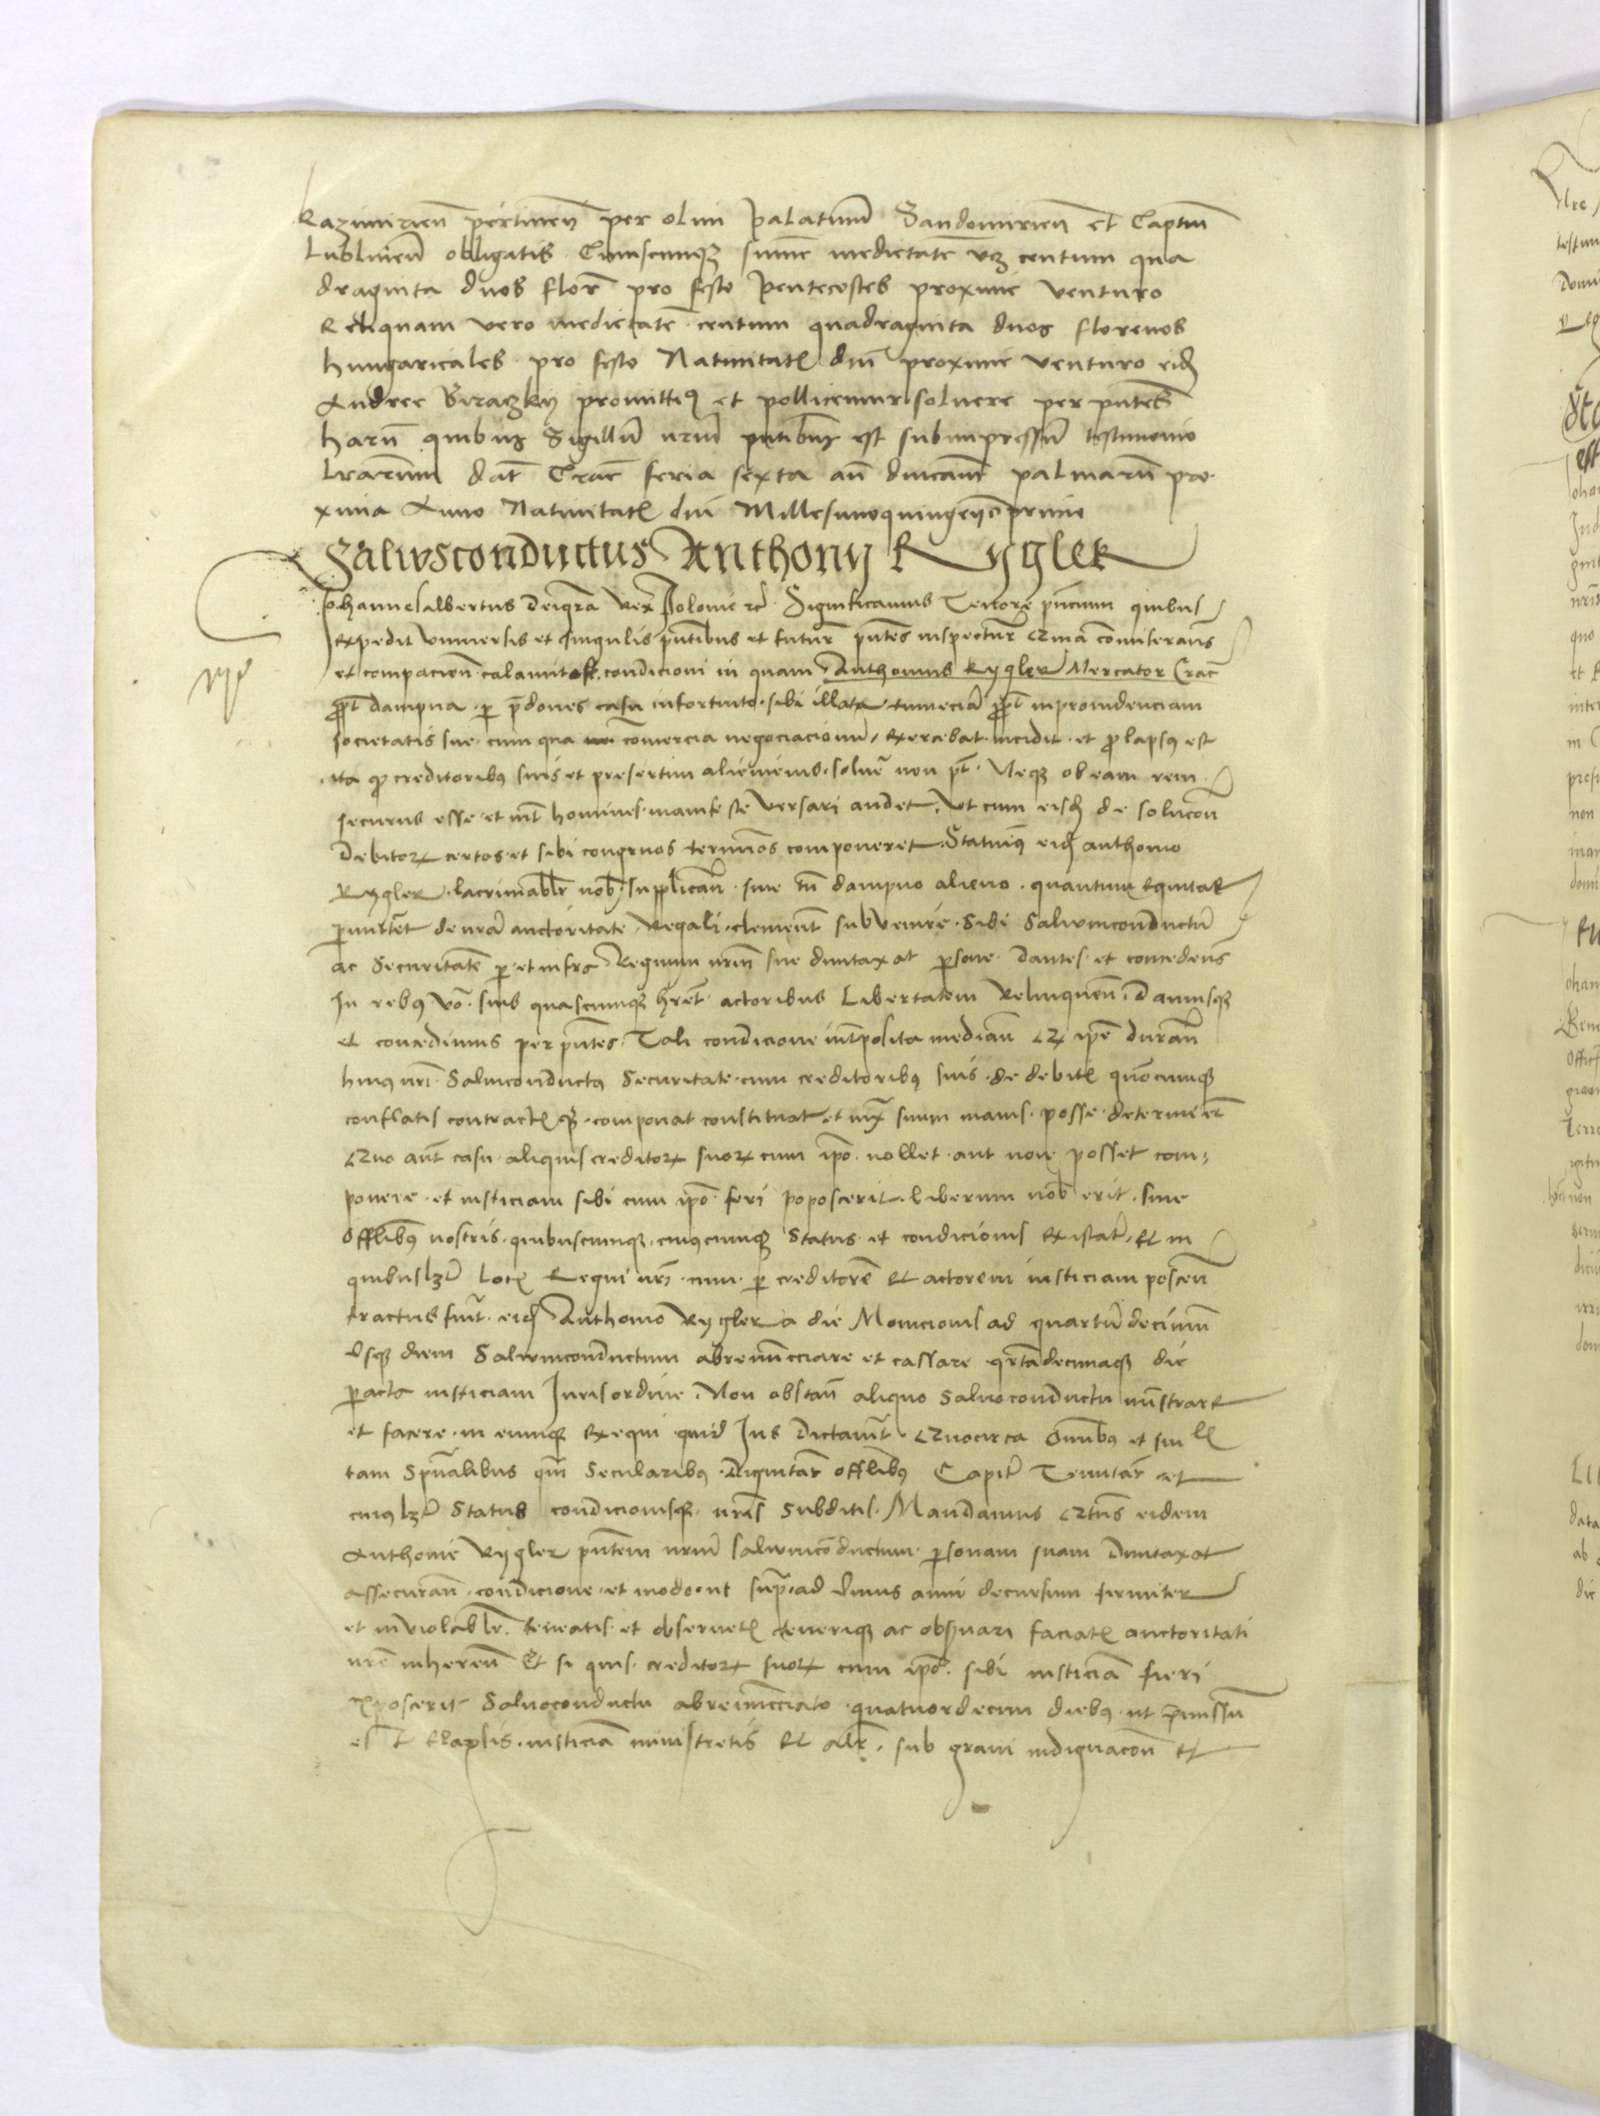 Kazimirien pertinen per olim palatinum Sandomirien et Captm
Lublinen obligatis Cuiuscumque summe medietatem vz centum qua
draginta duos flor pro festo Pentecostes proxime venturo
Reliquam vero medietatem centum quadraginta duos florenos
hungaricales pro festo Natiuitatis dni proxime venturo eidem
Andree promittimus et pollicemur soluere per pntes
harum quibus Sigillum nrum pntibus est subimpressum testimonio
lrarum dat Crac feria sexta an dnicam palmarum pro
xima Anno Natiuitatis dni Millesimoquingen primo
Saluusconductus Anthonij Rygler
Johannes albertus dei gra Rex Polonie etc Significamus Tenore pncium quibus
expedit vniuersis et singulis pntibus et futuris pntes inspecturis Quia comiserans
et compacien calamitose condicioni in quam Anthonius Rygler Mercator Crac
propt dampna per predones casu infortuito sibi illata tum eciam propt inprouidenciam
societatis sue cum qua comercia negociacionum exercebat incidit et prolapsus est
ita quod creditoribus suis et presertim alienienis soluere non pt Neque ob eam rem
securus esse et int homines manifeste versari audet Vt cum eisdem de solucion
debitorum certos et sibi congruos terminos componeret Statuimus eidem anthonio
Rygler lacrimabilr nob supplican sine tn dampno alieno quantum equitas
permittet de nra auctoritate Regali clement subvenire Sibi Saluumconductum
ac Securitatem per et infra Regnum nrm sue duntaxat persone dantes et conceden
In rebus vero suis quascumque hret actoribus Libertatem Relinquen Damusque
et concedimus per pntes Tali condicione intposita median Quod ipse duran
huius nri Saluiconductus Securitate cum creditoribus suis de debitis quocumque
conflatis contractisque componat constituat et iux suum maius posse determinet
Quo aut casu aliquis creditorum suorum cum ipso nollet aut non posset com
ponere et iusticiam sibi cum ipso fieri poposcerit Liberum nob erit siue
Offlibus nostris quibuscumque cuiuscumque Status et condicionis existat et in
quibuslzt locis Regni nri cum per creditorem et actorem iusticiam poscen
tractus fuit eidem Anthonio Rygler a die Monicionis ad quartumdecimum
vsque diem Saluumconductum abrenuncciare et cassare qrtadecimaque die
peracta iusticiam Juris ordine Non obstan aliquo Saluoconductu ministrare
et facere in eumque exequi quid Jus dictauit Quocirca omnibus et singlis
tam spualibus qm Secularibus Dignitar offlibus Capit Tenutar et
cuiuslzt Status condicionisque nris Subditis Mandamus Qtns eidem
Anthonio Rygler pntem nrm saluumconductum personam suam duntaxat
assecuran condicione et modo ut supra ad vnius anni decursum firmiter
et inviolablr teneatis et obseruetis tenerique ac obseruari faciatis auctoritati
nre inheren Et si quis creditorum suorum cum ipso sibi iusticiam fieri
exposcerit Saluoconductu abrenuncciato quatuordecim diebus ut premissum
est elapsis iusticiam ministretis et alr sub graui indignacion et